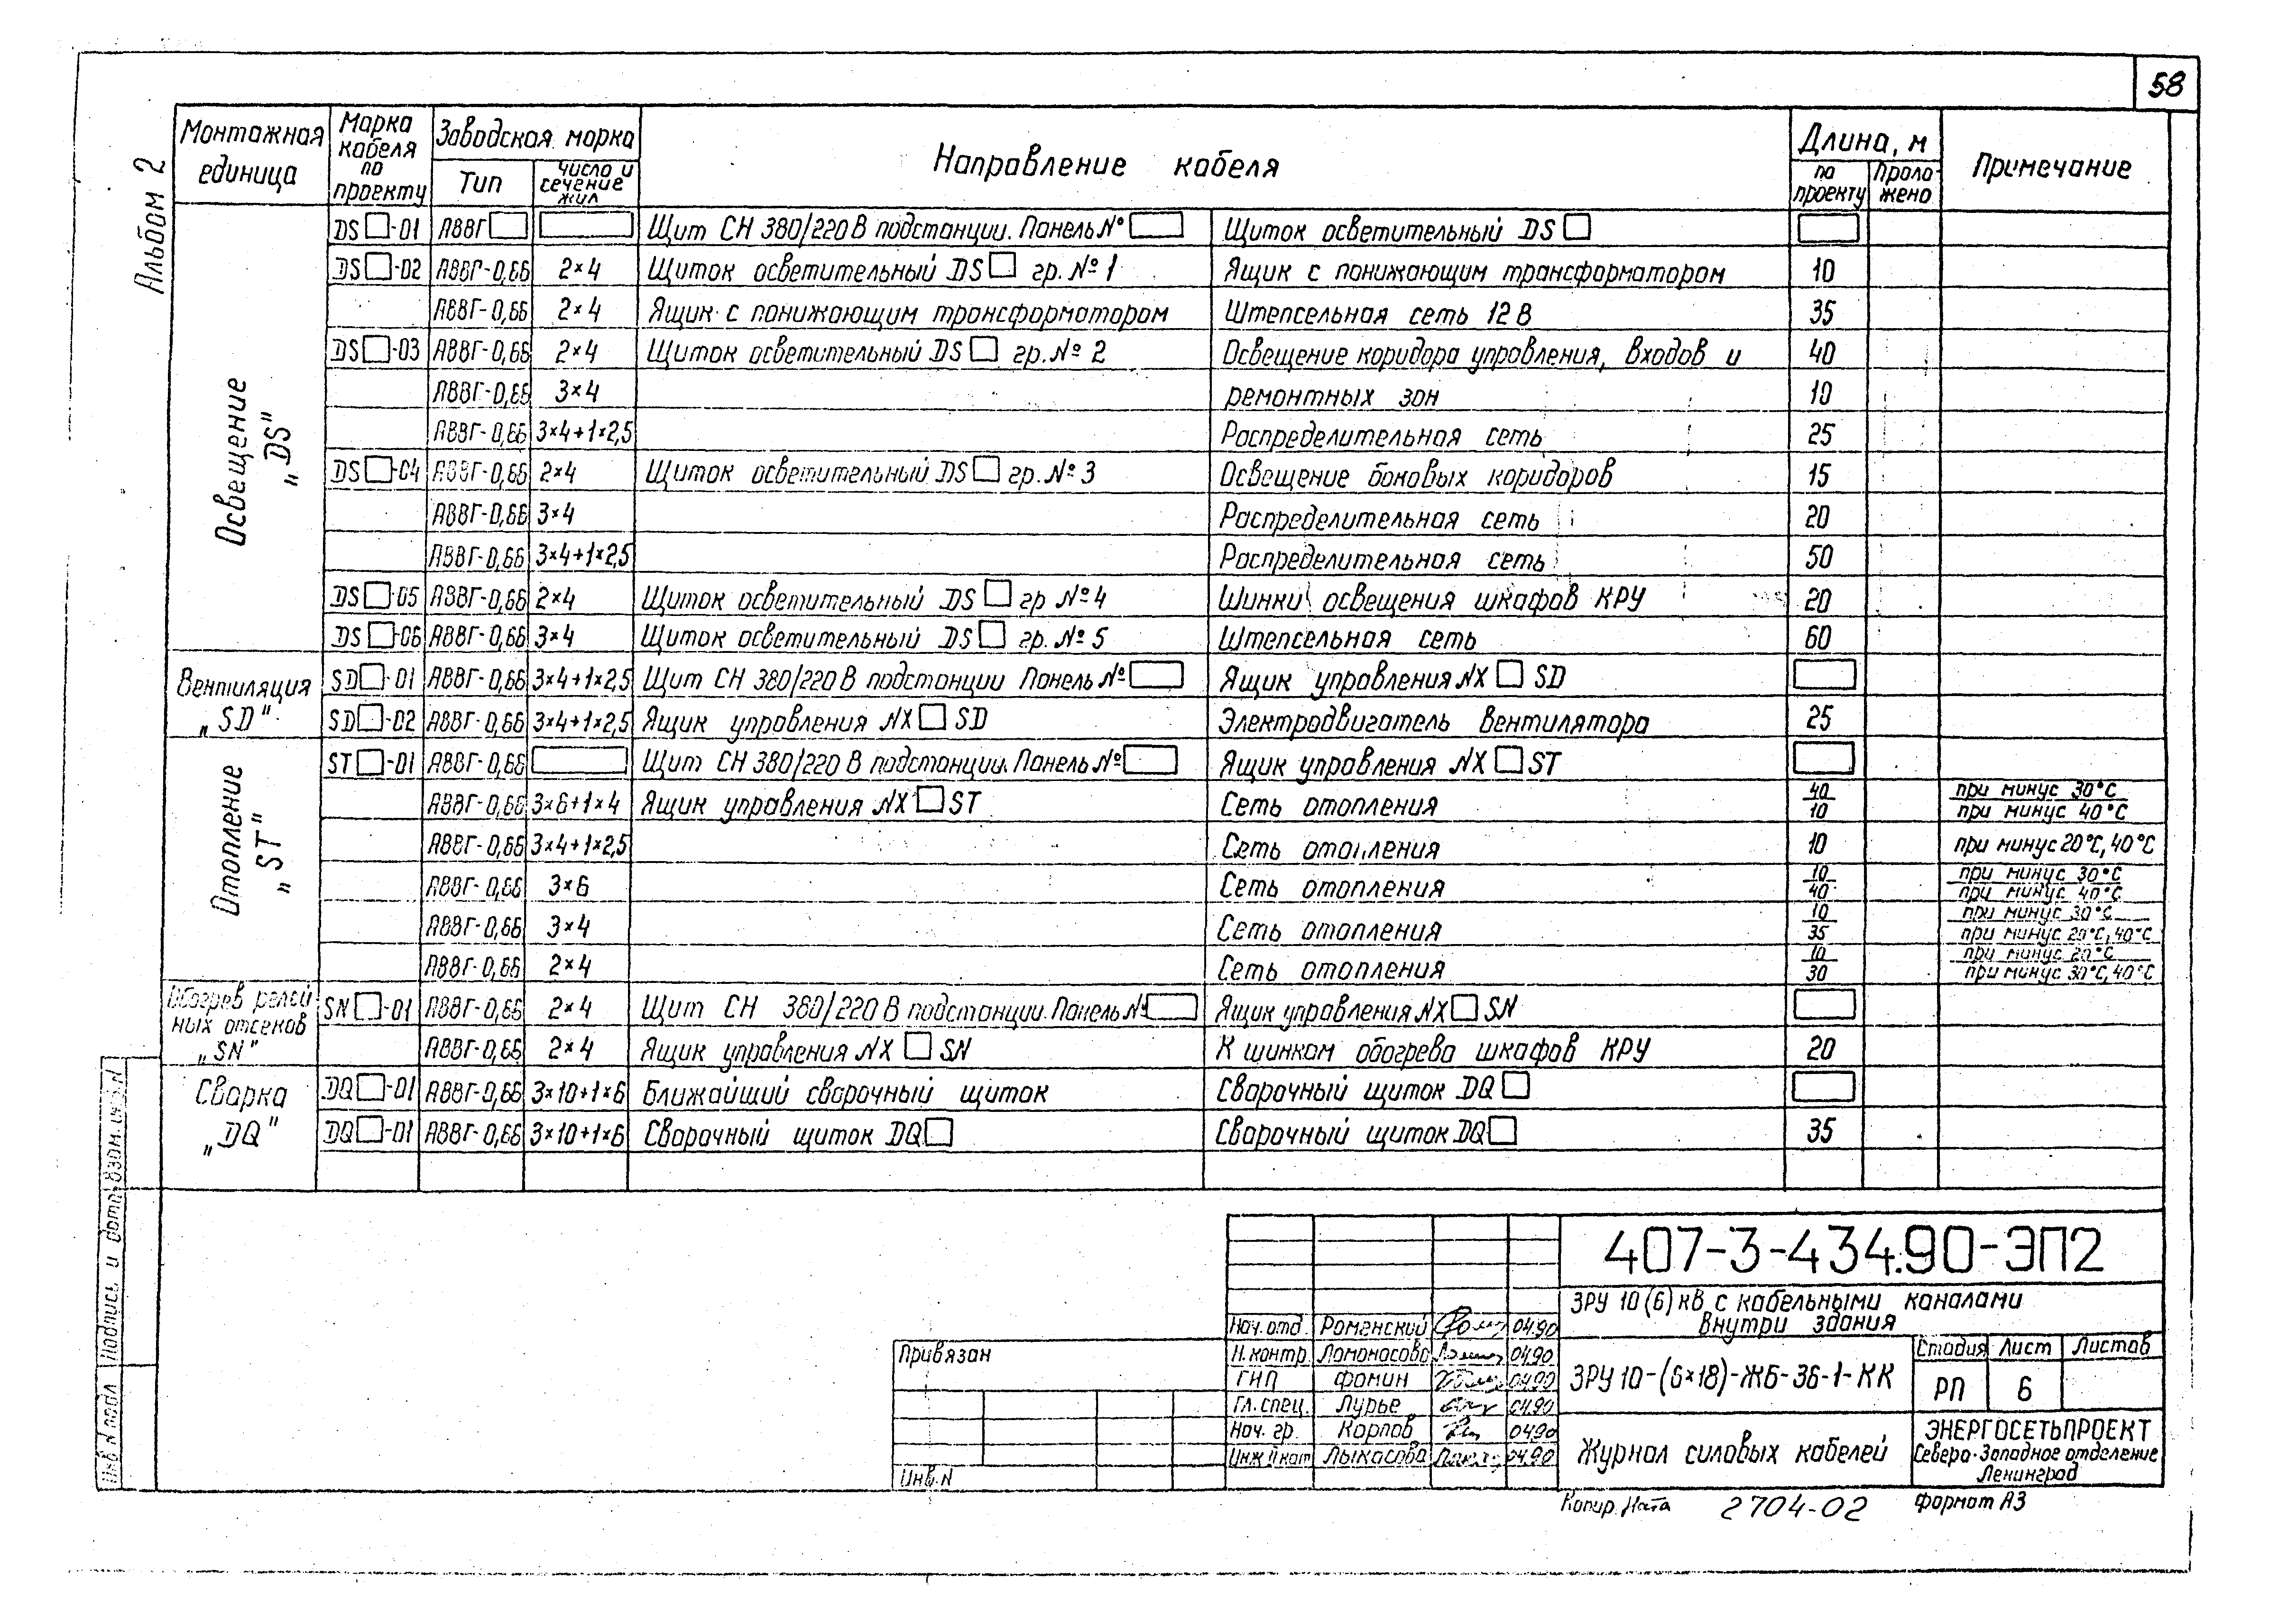 58
Альбом 2
Монтажная единица | Марка кабеля по проекту | Заводская марка | Направление кабеля | Длина, м | Примечание
Тип | Число и сечение жил | по проекту | Проложено
Освещение „DS"
DS□-01 | АВВГ□ | □ | Щит СН 380/220 В подстанции. Панель №□ | Щиток осветительный DS□ | □
DS□-02 | АВВГ-0,66 | 2×4 | Щиток осветительный DS□ гр. №1 | Ящик с понижающим трансформатором | 10
АВВГ-0,66 | 2×4 | Ящик с понижающим трансформатором | Штепсельная сеть 12 В | 35
DS□-03 | АВВГ-0,66 | 2×4 | Щиток осветительный DS□ гр. №2 | Освещение коридора управления, входов и | 40
АВВГ-0,66 | 3×4 | ремонтных зон | 10
АВВГ-0,66 | 3×4+1×2,5 | Распределительная сеть | 25
DS□-04 | АВВГ-0,66 | 2×4 | Щиток осветительный DS□ гр. №3 | Освещение боковых коридоров | 15
АВВГ-0,66 | 3×4 | Распределительная сеть | 20
АВВГ-0,66 | 3×4+1×2,5 | Распределительная сеть | 50
DS□-05 | АВВГ-0,66 | 2×4 | Щиток осветительный DS□ гр №4 | Шинки освещения шкафов КРУ | 20
DS□-06 | АВВГ-0,66 | 3×4 | Щиток осветительный DS□ гр. №5 | Штепсельная сеть | 60
Вентиляция „SD"
SD□-01 | АВВГ-0,66 | 3×4+1×2,5 | Щит СН 380/220 В подстанции Панель №□ | Ящик управления NX□SD | □
SD□-02 | АВВГ-0,66 | 3×4+1×2,5 | Ящик управления NX□SD | Электродвигатель вентилятора | 25
Отопление „ST"
ST□-01 | АВВГ-0,66 | □ | Щит СН 380/220 В подстанции. Панель №□ | Ящик управления NX□ST | □
АВВГ-0,66 | 3×6+1×4 | Ящик управления NX□ST | Сеть отопления | 40 / 10 | при минус 30°С / при минус 40°С
АВВГ-0,66 | 3×4+1×2,5 | Сеть отопления | 10 | при минус 20°С, 40°С
АВВГ-0,66 | 3×6 | Сеть отопления | 10 / 40 | при минус 30°С / при минус 40°С
АВВГ-0,66 | 3×4 | Сеть отопления | 10 / 35 | при минус 30°С / при минус 20°С, 40°С
АВВГ-0,66 | 2×4 | Сеть отопления | 10 / 30 | при минус 20°С / при минус 30°С, 40°С
Обогрев релейных отсеков „SN"
SN□-01 | АВВГ-0,66 | 2×4 | Щит СН 380/220 В подстанции. Панель №□ | Ящик управления NX□SN | □
АВВГ-0,66 | 2×4 | Ящик управления NX□SN | К шинкам обогрева шкафов КРУ | 20
Сварка „DQ"
DQ□-01 | АВВГ-0,66 | 3×10+1×6 | Ближайший сварочный щиток | Сварочный щиток DQ□ | □
DQ□-01 | АВВГ-0,66 | 3×10+1×6 | Сварочный щиток DQ□ | Сварочный щиток DQ□ | 35
Инв. N подл | Подпись и дата | Взам. инв. N
Привязан
Инв. N
Нач. отд. | Роменский | 04.90
Н. контр | Ломоносова | 04.90
ГИП | Фомин | 04.90
Гл. спец. | Лурье | 04.90
Нач. гр. | Карпов | 04.90
Инж II кат | Лыкасова | 04.90
407-3-434.90-ЭП2
ЗРУ 10 (6) кВ с кабельными каналами
внутри здания
ЗРУ 10-(6×18)-ЖБ-36-1-КК
Стадия | Лист | Листов
РП | 6
Журнал силовых кабелей
ЭНЕРГОСЕТЬПРОЕКТ
Северо-Западное отделение
Ленинград
Копир. Ната 2704-02 Формат А3